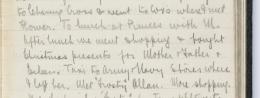 to Charing Cross & went to W.O. where I met
Power. To lunch at Princes with Mr.
After lunch we went shopping & bought
Christmas presents for Mother & Father &
Taxi to Army & Navy Stores where
I left her. Met Frosty Allan. More shopping.